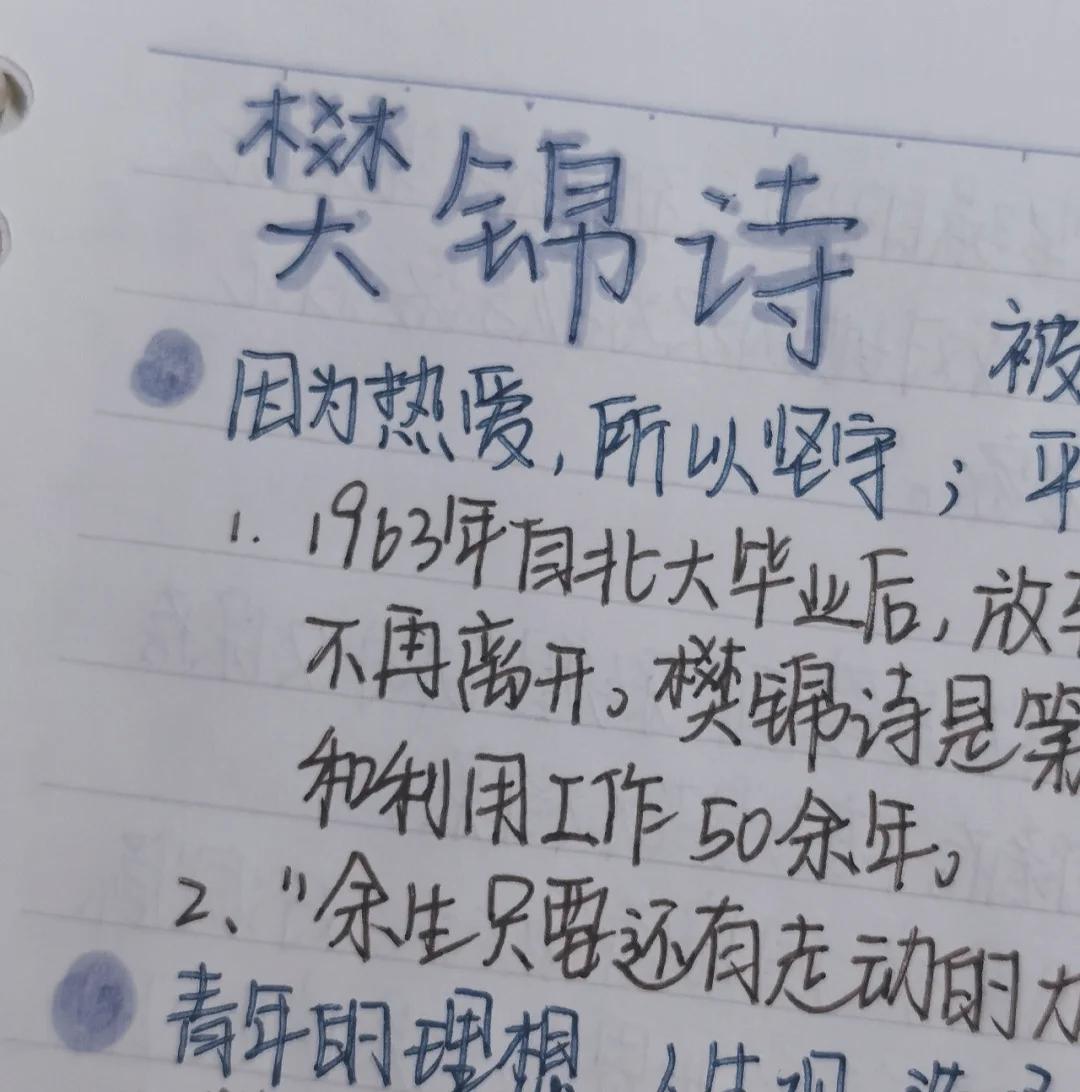 樊锦诗
被
因为热爱，所以坚守；平
1. 1963年自北大毕业后，放弃
不再离开。樊锦诗是第
和利用工作50余年。
2、“余生只要还有走动的力
青年的理想